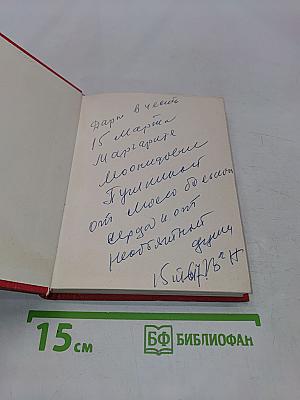 Дарю в честь
15 Марта
Маргарите
Леонидовне
Пушкиной
от моего большого
сердца и от
необъятной души
15
15 см
БФ БИБЛИОФАН